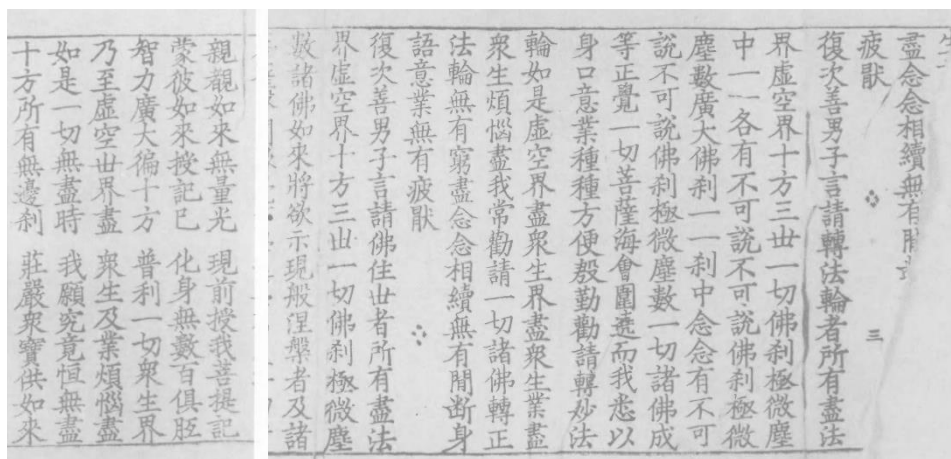 盡念念相續無有間
疲猒
三
復次善男子言請轉法輪者所有盡法
界虛空界十方三世一切佛刹極微塵
中一一各有不可說不可說佛刹極微
塵數廣大佛刹一一刹中念念有不可
說不可說佛刹極微塵數一切諸佛成
等正覺一切菩薩海會圍遶而我悉以
身口意業種種方便殷勤勸請轉妙法
輪如是虛空界盡衆生界盡衆生業盡
衆生煩惱盡我常勸請一切諸佛轉正
法輪無有窮盡念念相續無有間斷身
語意業無有疲猒
復次善男子言請佛住世者所有盡法
界虛空界十方三世一切佛刹極微塵
數諸佛如來將欲示現般涅槃者及諸
親覩如來無量光 現前授我菩提記
蒙彼如來授記已 化身無數百俱胝
智力廣大徧十方 普利一切衆生界
乃至虛空世界盡 衆生及業煩惱盡
如是一切無盡時 我願究竟恒無盡
十方所有無邊刹 莊嚴衆寶供如來